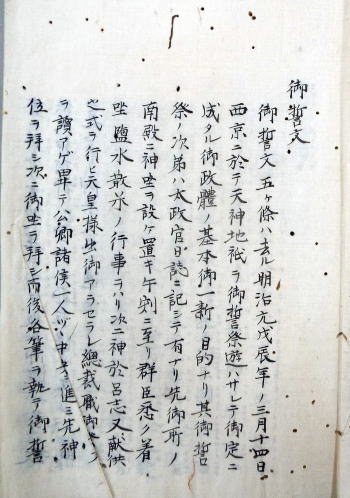 御誓文
御誓文五ヶ條ハ去ル明治元戊辰年ノ三月十四日
西京ニ於テ天神地祇ヲ御誓祭遊ハサレテ御定ニ
成タル御政體ノ基本御一新ノ目的ナリ其御誓
祭ノ次第ハ太政官日誌ニ記シテ有ナリ先御所ノ
南殿ニ神坐ヲ設ケ置キ午刻ニ至リ群臣悉ク着
坐鹽水散米ノ行事ヲハリ次ニ神於呂志又献供
之式ヲ行ヒ天皇様出御アラセラレ總裁職御
ヲ讀アゲ畢テ公卿諸侯一人ツヽ中央ニ進ミ先神
位ヲ拜シ次ニ御坐ヲ拜シ而後各筆ヲ執テ御誓